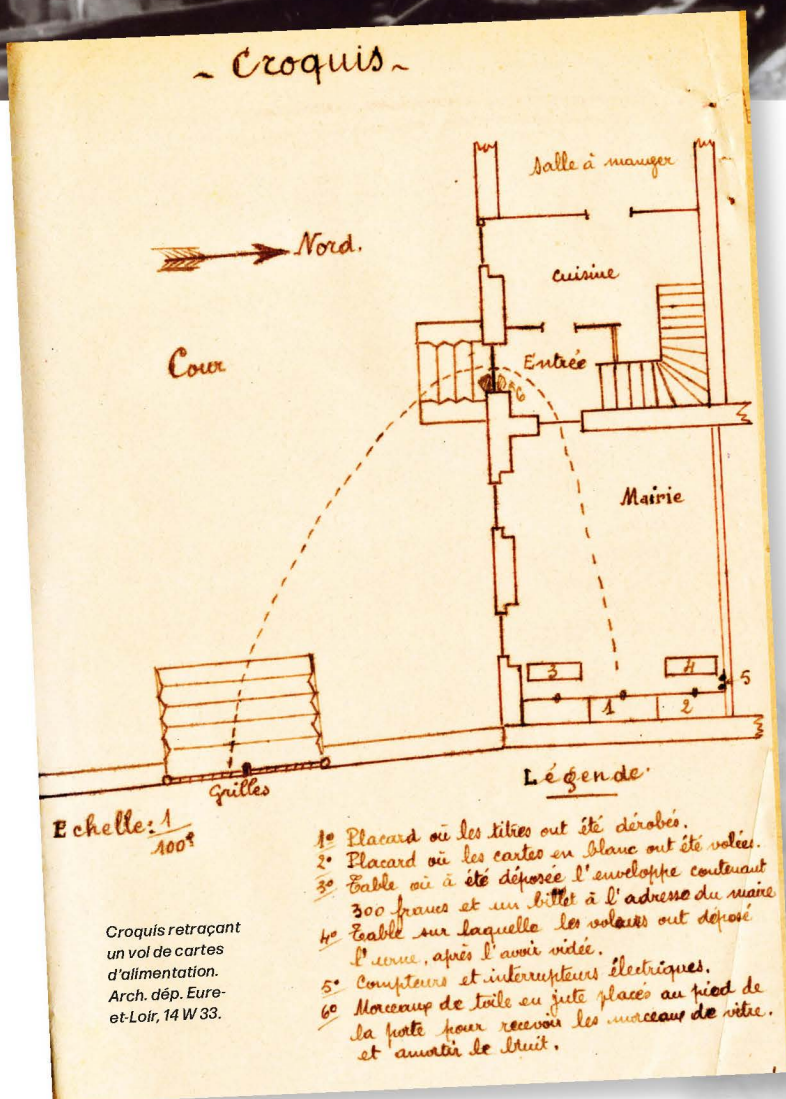 ~ Croquis ~
Salle à manger
Nord.
cuisine
Cour
Entrée
6
Mairie
3
4
5
1
2
Grilles
Légende.
Echelle: 1/100e
1º Placard où les titres ont été dérobés.
2º Placard où les cartes en blanc ont été volées.
3º Table où à été déposée l'enveloppe contenant
300 francs et un billet à l'adresse du maire
4º Table sur laquelle les voleurs ont déposé
l'urne, après l'avoir vidée.
5º Compteurs et interrupteurs électriques.
6º Morceaux de toile en jute placés au pied de
la porte pour recevoir les morceaux de vitre.
et amortir le bruit.
Croquis retraçant
un vol de cartes
d'alimentation.
Arch. dép. Eure-
et-Loir, 14 W 33.